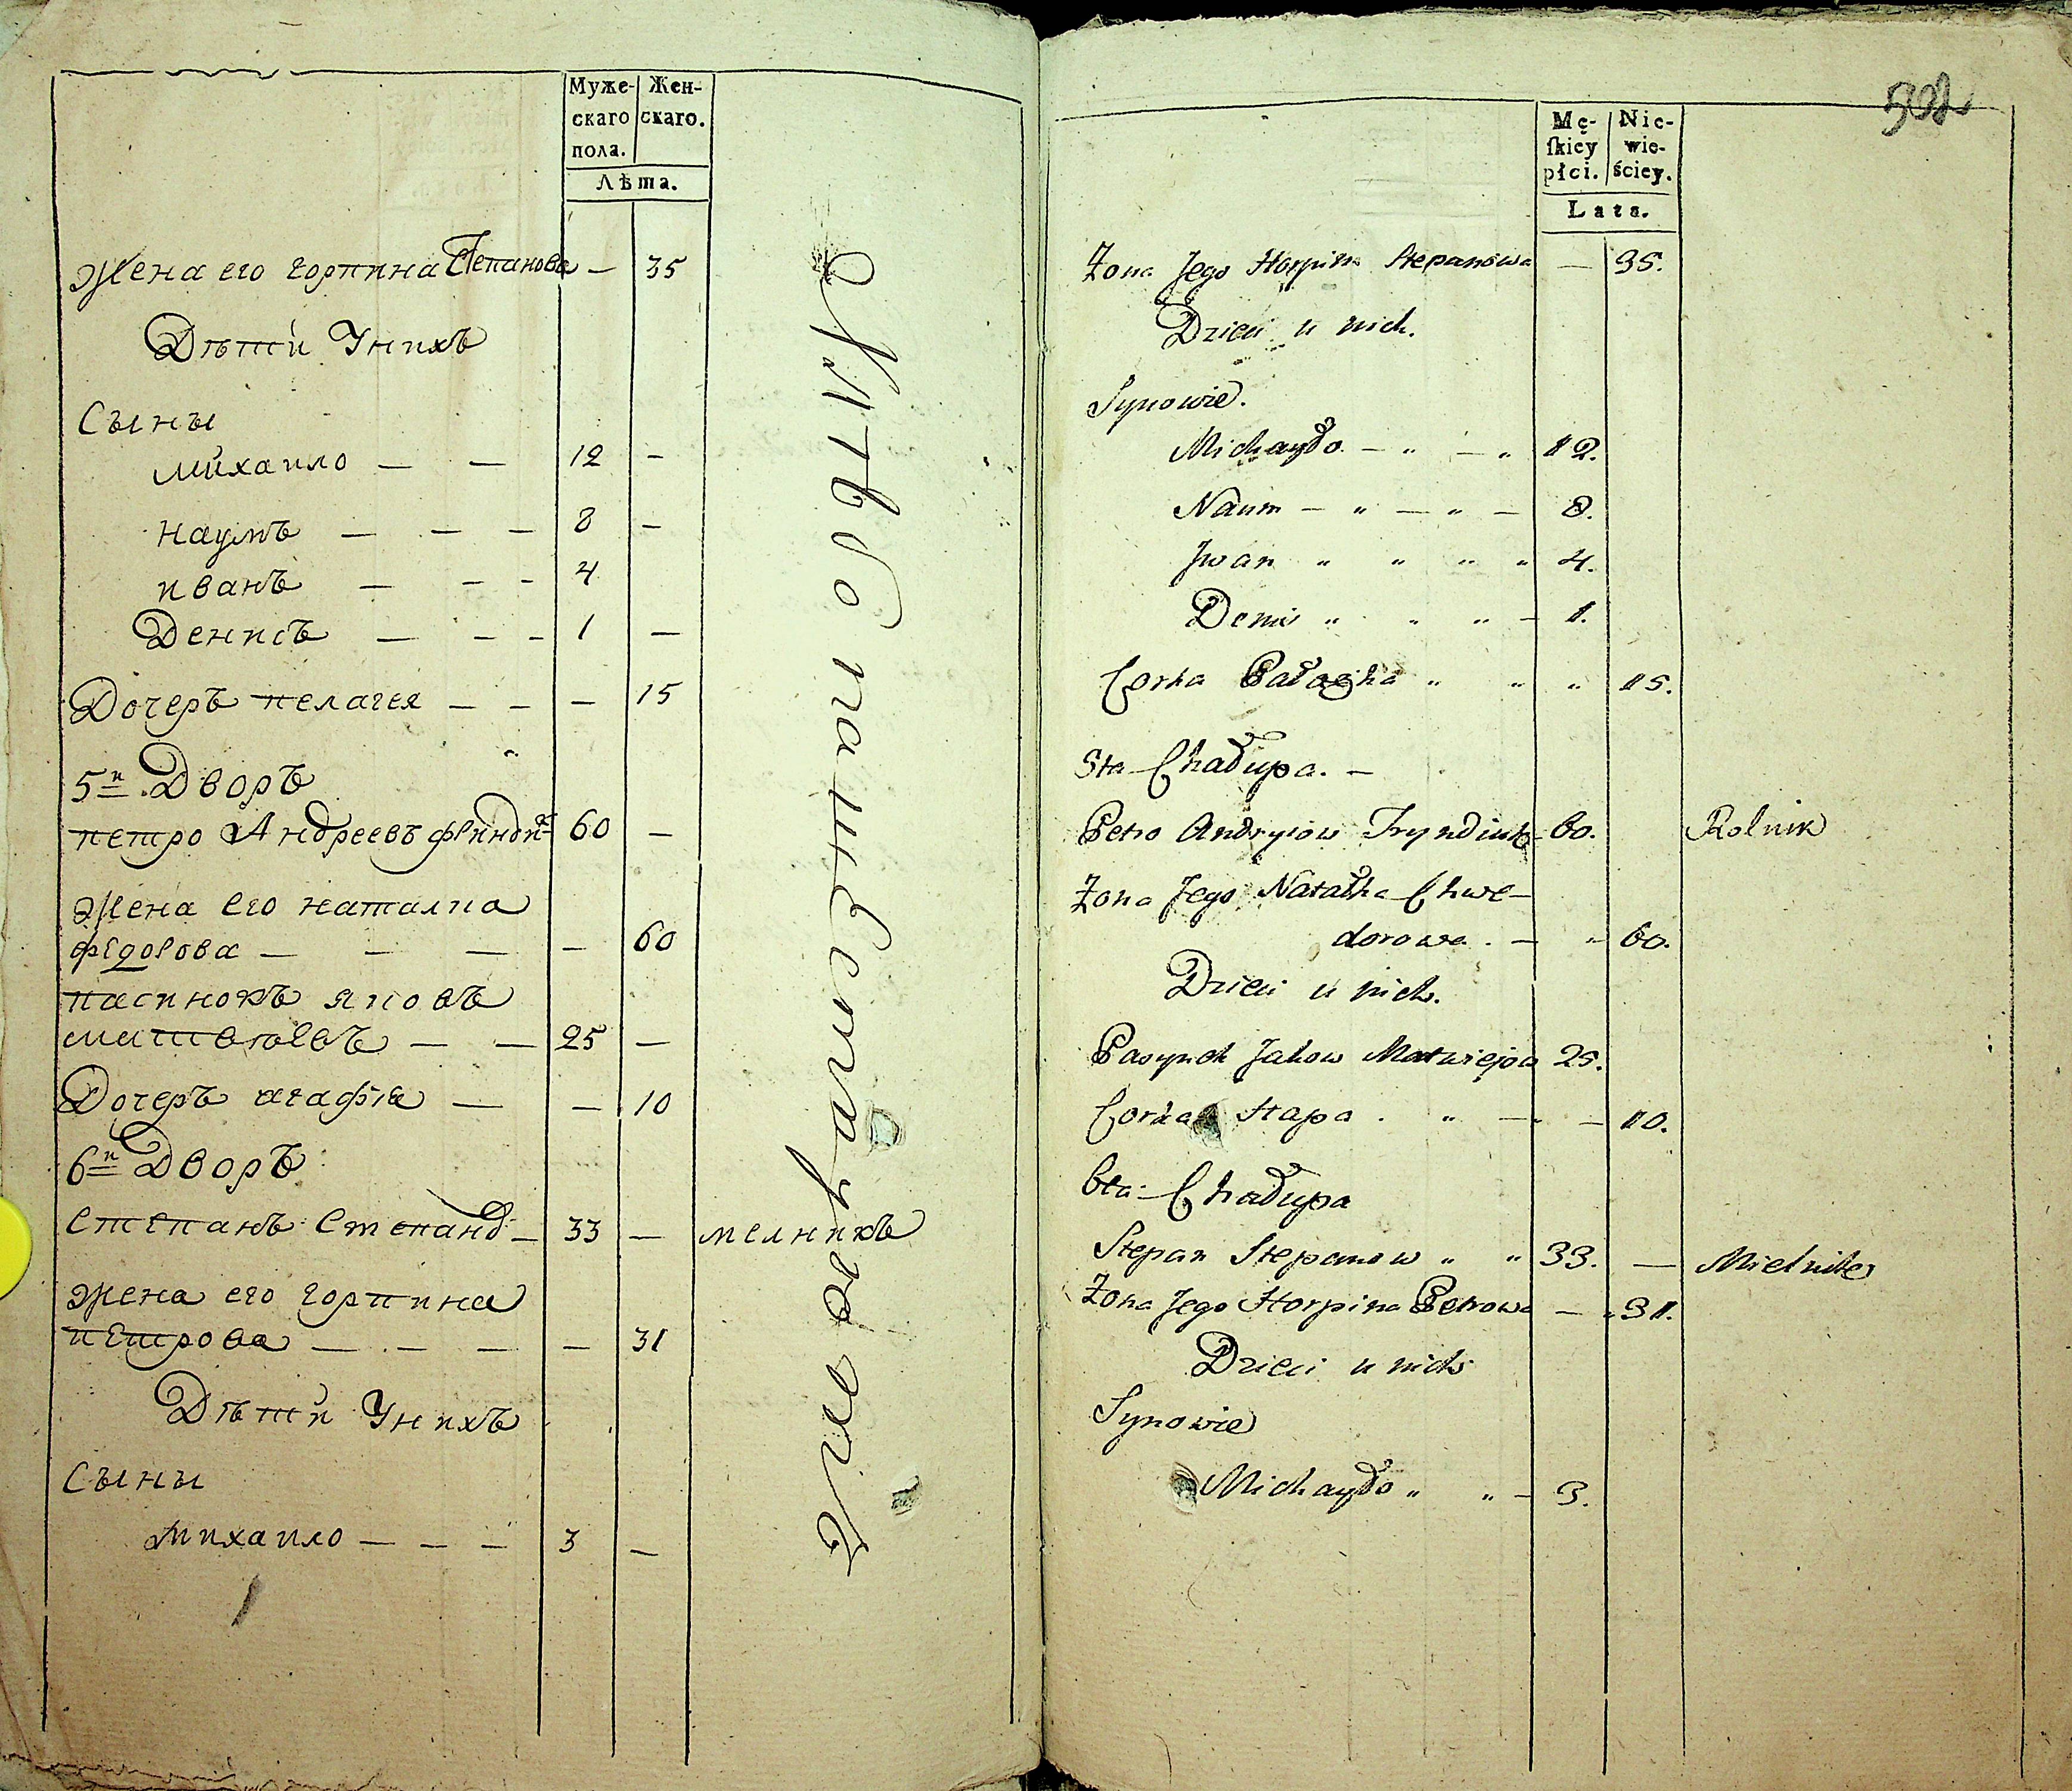 Муже-
скаго
пола.
Жен-
скаго.
Лѣта.
Жена его горпина Степанова — 35
Дѣти Унихъ
Сыны
михаило — — 12 —
наумъ — — — 8 —
иванъ — — - 4
Денисъ — - - 1 —
Дочеръ пелагея — — — 15
5й Дворъ
петро Андреевъ 60 —
жена его наталиа
федорова — — — — 60
пасинокъ яковъ
матвѣевъ — — 25 —
Дочеръ агафия — — 10
6й Дворъ
Степанъ Степанов — 33 — мелникъ
жена его горпина
петрова — — — — 31
Дѣти Унихъ
Сыны
михаило — — — 3 —
502
Mę-
ſkiey
płci.
Nie-
wie-
ściey.
Lata.
Żona Jego Horpina Stepanowa — 35.
Dzieci u nich.
Synowie.
Michayło — " — " 12.
Naum — " — " — 8.
Jwan " " " " 4.
Denis " " " — 1.
Corka Pałagha " " " 15.
5ta Chałupa. —
Petro Andryiow 60. Rolnik
Żona Jego Natałka Chwe-
dorowa . — " 60.
Dzieci u nich.
Pasynek Jakow Matwiejow 25.
Corka Hapa . " — — 10.
6ta Chałupa
Stepan Stepanow " " 33. — Mielnik
Żona Jego Horpina Petrowa — " 31.
Dzieci u nich
Synowie
Michayło " " — 3.